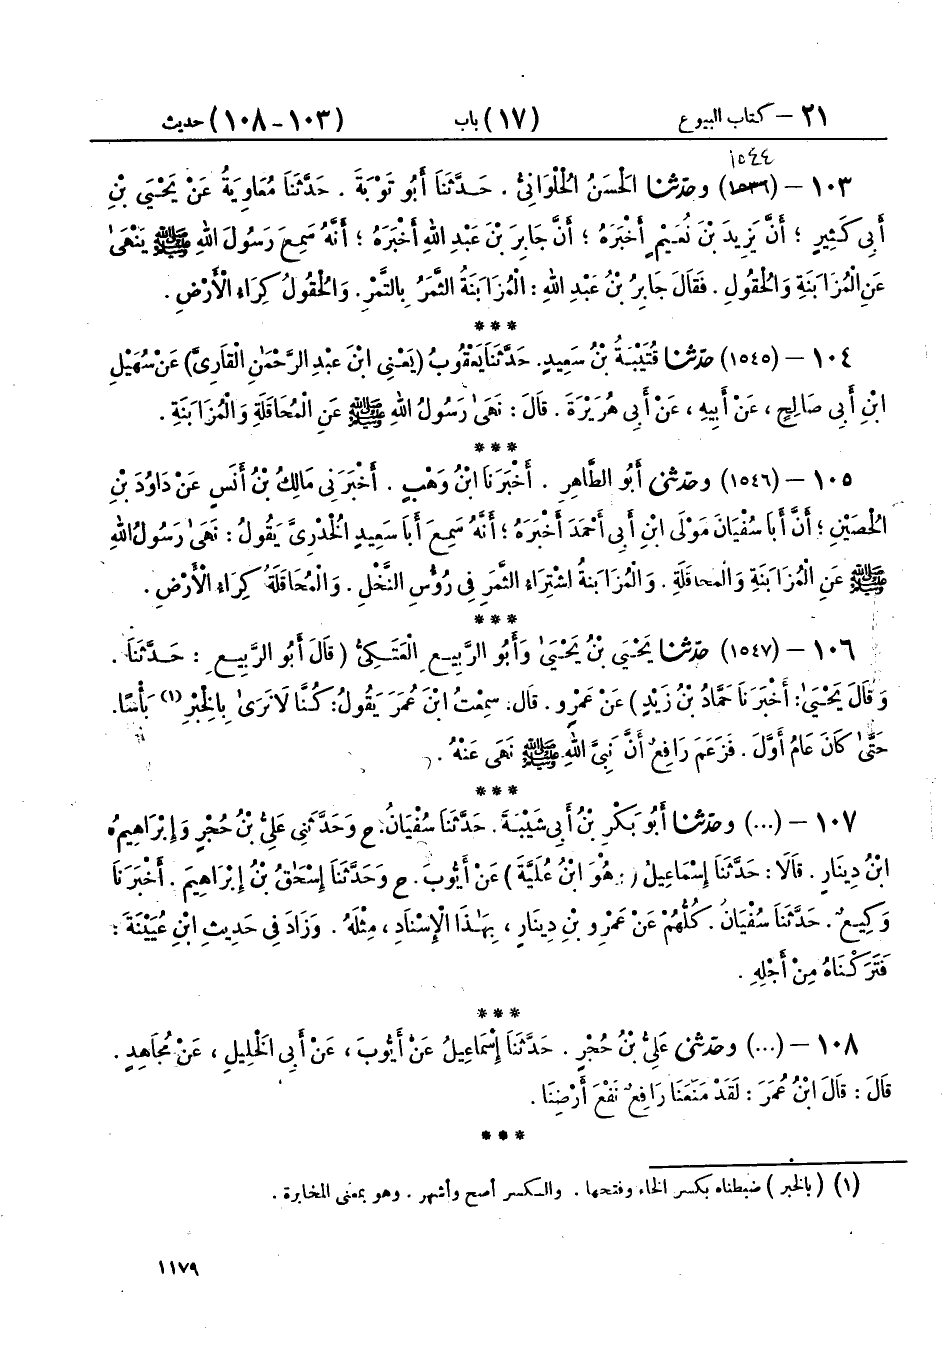 ٢١ – كتاب البيوع (١٧) باب (١٠٣ – ١٠٨) حديث
١٥٤٤
١٠٣ – (١٥٣٦) وحدّثنا الحَسَنُ الْحُلْوَانِيُّ . حَدَّثَنَا أَبُو تَوْبَةَ . حَدَّثَنَا مُعَاوِيَةُ عَنْ يَحْيَى بْنِ
أَبِي كَثِيرٍ ؛ أَنَّ يَزِيدَ بْنَ نُعَيْمٍ أَخْبَرَهُ ؛ أَنَّ جَابِرَ بْنَ عَبْدِ اللهِ أَخْبَرَهُ ؛ أَنَّهُ سَمِعَ رَسُولَ اللهِ ﷺ يَنْهَىٰ
عَنِ الْمُزَابَنَةِ وَالْحُقُولِ . فَقَالَ جَابِرُ بْنُ عَبْدِ اللهِ : الْمُزَابَنَةُ الثَّمَرُ بِالتَّمْرِ . وَالْحُقُولُ كِرَاءُ الْأَرْضِ .
***
١٠٤ – (١٥٤٥) حدّثنا قُتَيْبَةُ بْنُ سَعِيدٍ . حَدَّثَنَا يَعْقُوبُ (يَعْنِي ابْنَ عَبْدِ الرَّحْمَٰنِ الْقَارِيَّ) عَنْ سُهَيْلِ
ابْنِ أَبِي صَالِحٍ ، عَنْ أَبِيهِ ، عَنْ أَبِي هُرَيْرَةَ . قَالَ : نَهَىٰ رَسُولُ اللهِ ﷺ عَنِ الْمُحَاقَلَةِ وَالْمُزَابَنَةِ .
***
١٠٥ – (١٥٤٦) وحدّثني أَبُو الطَّاهِرِ . أَخْبَرَنَا ابْنُ وَهْبٍ . أَخْبَرَنِي مَالِكُ بْنُ أَنَسٍ عَنْ دَاوُدَ بْنِ
الْحُصَيْنِ ؛ أَنَّ أَبَا سُفْيَانَ مَوْلَى ابْنِ أَبِي أَحْمَدَ أَخْبَرَهُ ؛ أَنَّهُ سَمِعَ أَبَا سَعِيدٍ الْخُدْرِيَّ يَقُولُ : نَهَىٰ رَسُولُ اللهِ
ﷺ عَنِ الْمُزَابَنَةِ وَالْمُحَاقَلَةِ . وَالْمُزَابَنَةُ اشْتِرَاءُ الثَّمَرِ فِي رُؤُسِ النَّخْلِ . وَالْمُحَاقَلَةُ كِرَاءُ الْأَرْضِ .
***
١٠٦ – (١٥٤٧) حدّثنا يَحْيَىٰ بْنُ يَحْيَىٰ وَأَبُو الرَّبِيعِ الْعَتَكِيُّ ( قَالَ أَبُو الرَّبِيعِ : حَدَّثَنَا .
وَقَالَ يَحْيَىٰ : أَخْبَرَنَا حَمَّادُ بْنُ زَيْدٍ ) عَنْ عَمْرٍو . قَالَ : سَمِعْتُ ابْنَ عُمَرَ يَقُولُ : كُنَّا لَا نَرَىٰ بِالْخِبْرِ (١) بَأْسًا .
حَتَّىٰ كَانَ عَامُ أَوَّلَ . فَزَعَمَ رَافِعٌ أَنَّ نَبِيَّ اللهِ ﷺ نَهَى عَنْهُ .
***
١٠٧ – (...) وحدّثنا أَبُو بَكْرِ بْنُ أَبِي شَيْبَةَ . حَدَّثَنَا سُفْيَانُ . ح وَحَدَّثَنِي عَلِيُّ بْنُ حُجْرٍ وَإِبْرَاهِيمُ
ابْنُ دِينَارٍ . قَالَا : حَدَّثَنَا إِسْمَاعِيلُ ( هُوَ ابْنُ عُلَيَّةَ ) عَنْ أَيُّوبَ . ح وَحَدَّثَنَا إِسْحَٰقُ بْنُ إِبْرَاهِيمَ . أَخْبَرَنَا
وَكِيعٌ . حَدَّثَنَا سُفْيَانُ . كُلُّهُمْ عَنْ عَمْرِو بْنِ دِينَارٍ ، بِهَٰذَا الْإِسْنَادِ ، مِثْلَهُ . وَزَادَ فِي حَدِيثِ ابْنِ عُيَيْنَةَ :
فَتَرَكْنَاهُ مِنْ أَجْلِهِ .
***
١٠٨ – (...) وحدّثني عَلِيُّ بْنُ حُجْرٍ . حَدَّثَنَا إِسْمَاعِيلُ عَنْ أَيُّوبَ ، عَنْ أَبِي الْخَلِيلِ ، عَنْ مُجَاهِدٍ .
قَالَ : قَالَ ابْنُ عُمَرَ : لَقَدْ مَنَعَنَا رَافِعٌ نَفْعَ أَرْضِنَا .
***
(١) (بالخبر) ضبطناه بكسر الخاء وفتحها . والكسر أصح وأشهر . وهو بمعنى المخابرة .
١١٧٩